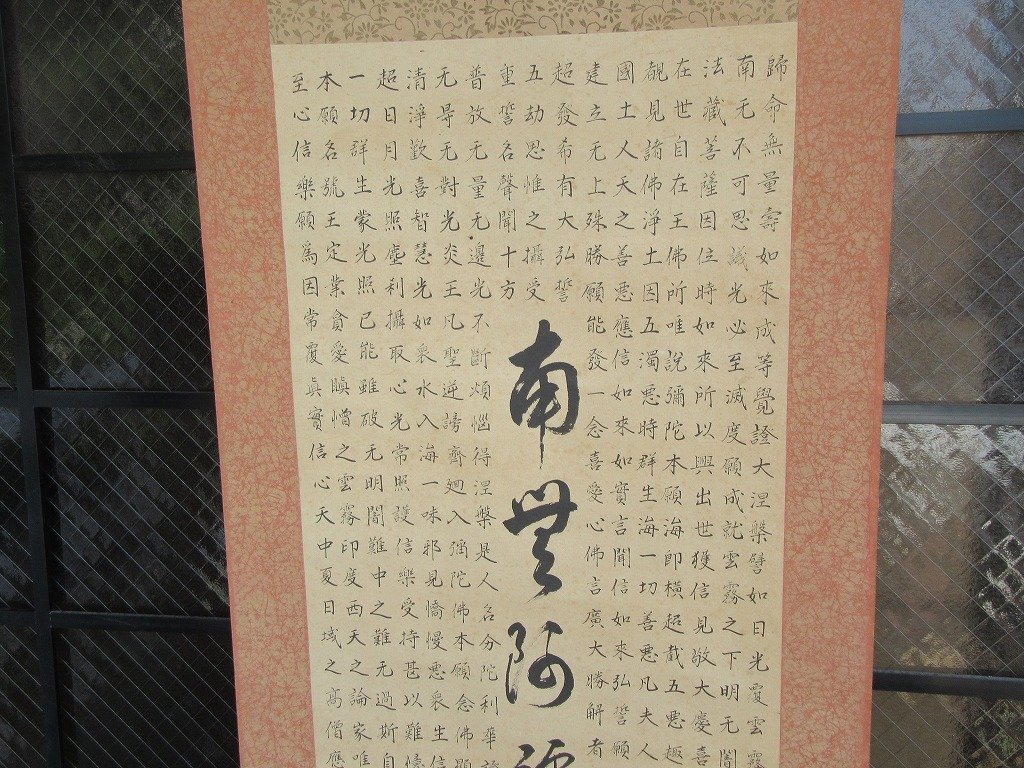 歸命無量壽如來成等覺證大涅槃譬如日光覆雲霧
南无不可思議光必至滅度願成就雲霧之下明无闇
法藏菩薩因位時如來所以興出世獲信見敬大慶喜
在世自在王佛所唯說彌陀本願海即橫超截五惡趣
覩見諸佛淨土因五濁惡時群生海一切善惡凡夫人
國土人天之善惡應信如來如實言聞信如來弘誓願
建立无上殊勝願能發一念喜愛心佛言廣大勝解者
超發希有大弘誓
五劫思惟之攝受
重誓名聲聞十方
南無阿
普放无量无邊光不斷煩惱得涅槃是人名分陀利華
无㝵无對光炎王凡聖逆謗齊廻入彌陀佛本願念佛
清淨歡喜智慧光如衆水入海一味邪見憍慢惡衆生信
超日月光照塵刹攝取心光常照護信樂受持甚以難
一切群生蒙光照已能雖破无明闇難中之難无過斯自
本願名號王定業貪愛瞋憎之雲霧印度西天之論家唯
至心信樂願爲因常覆眞實信心天中夏日域之高僧應